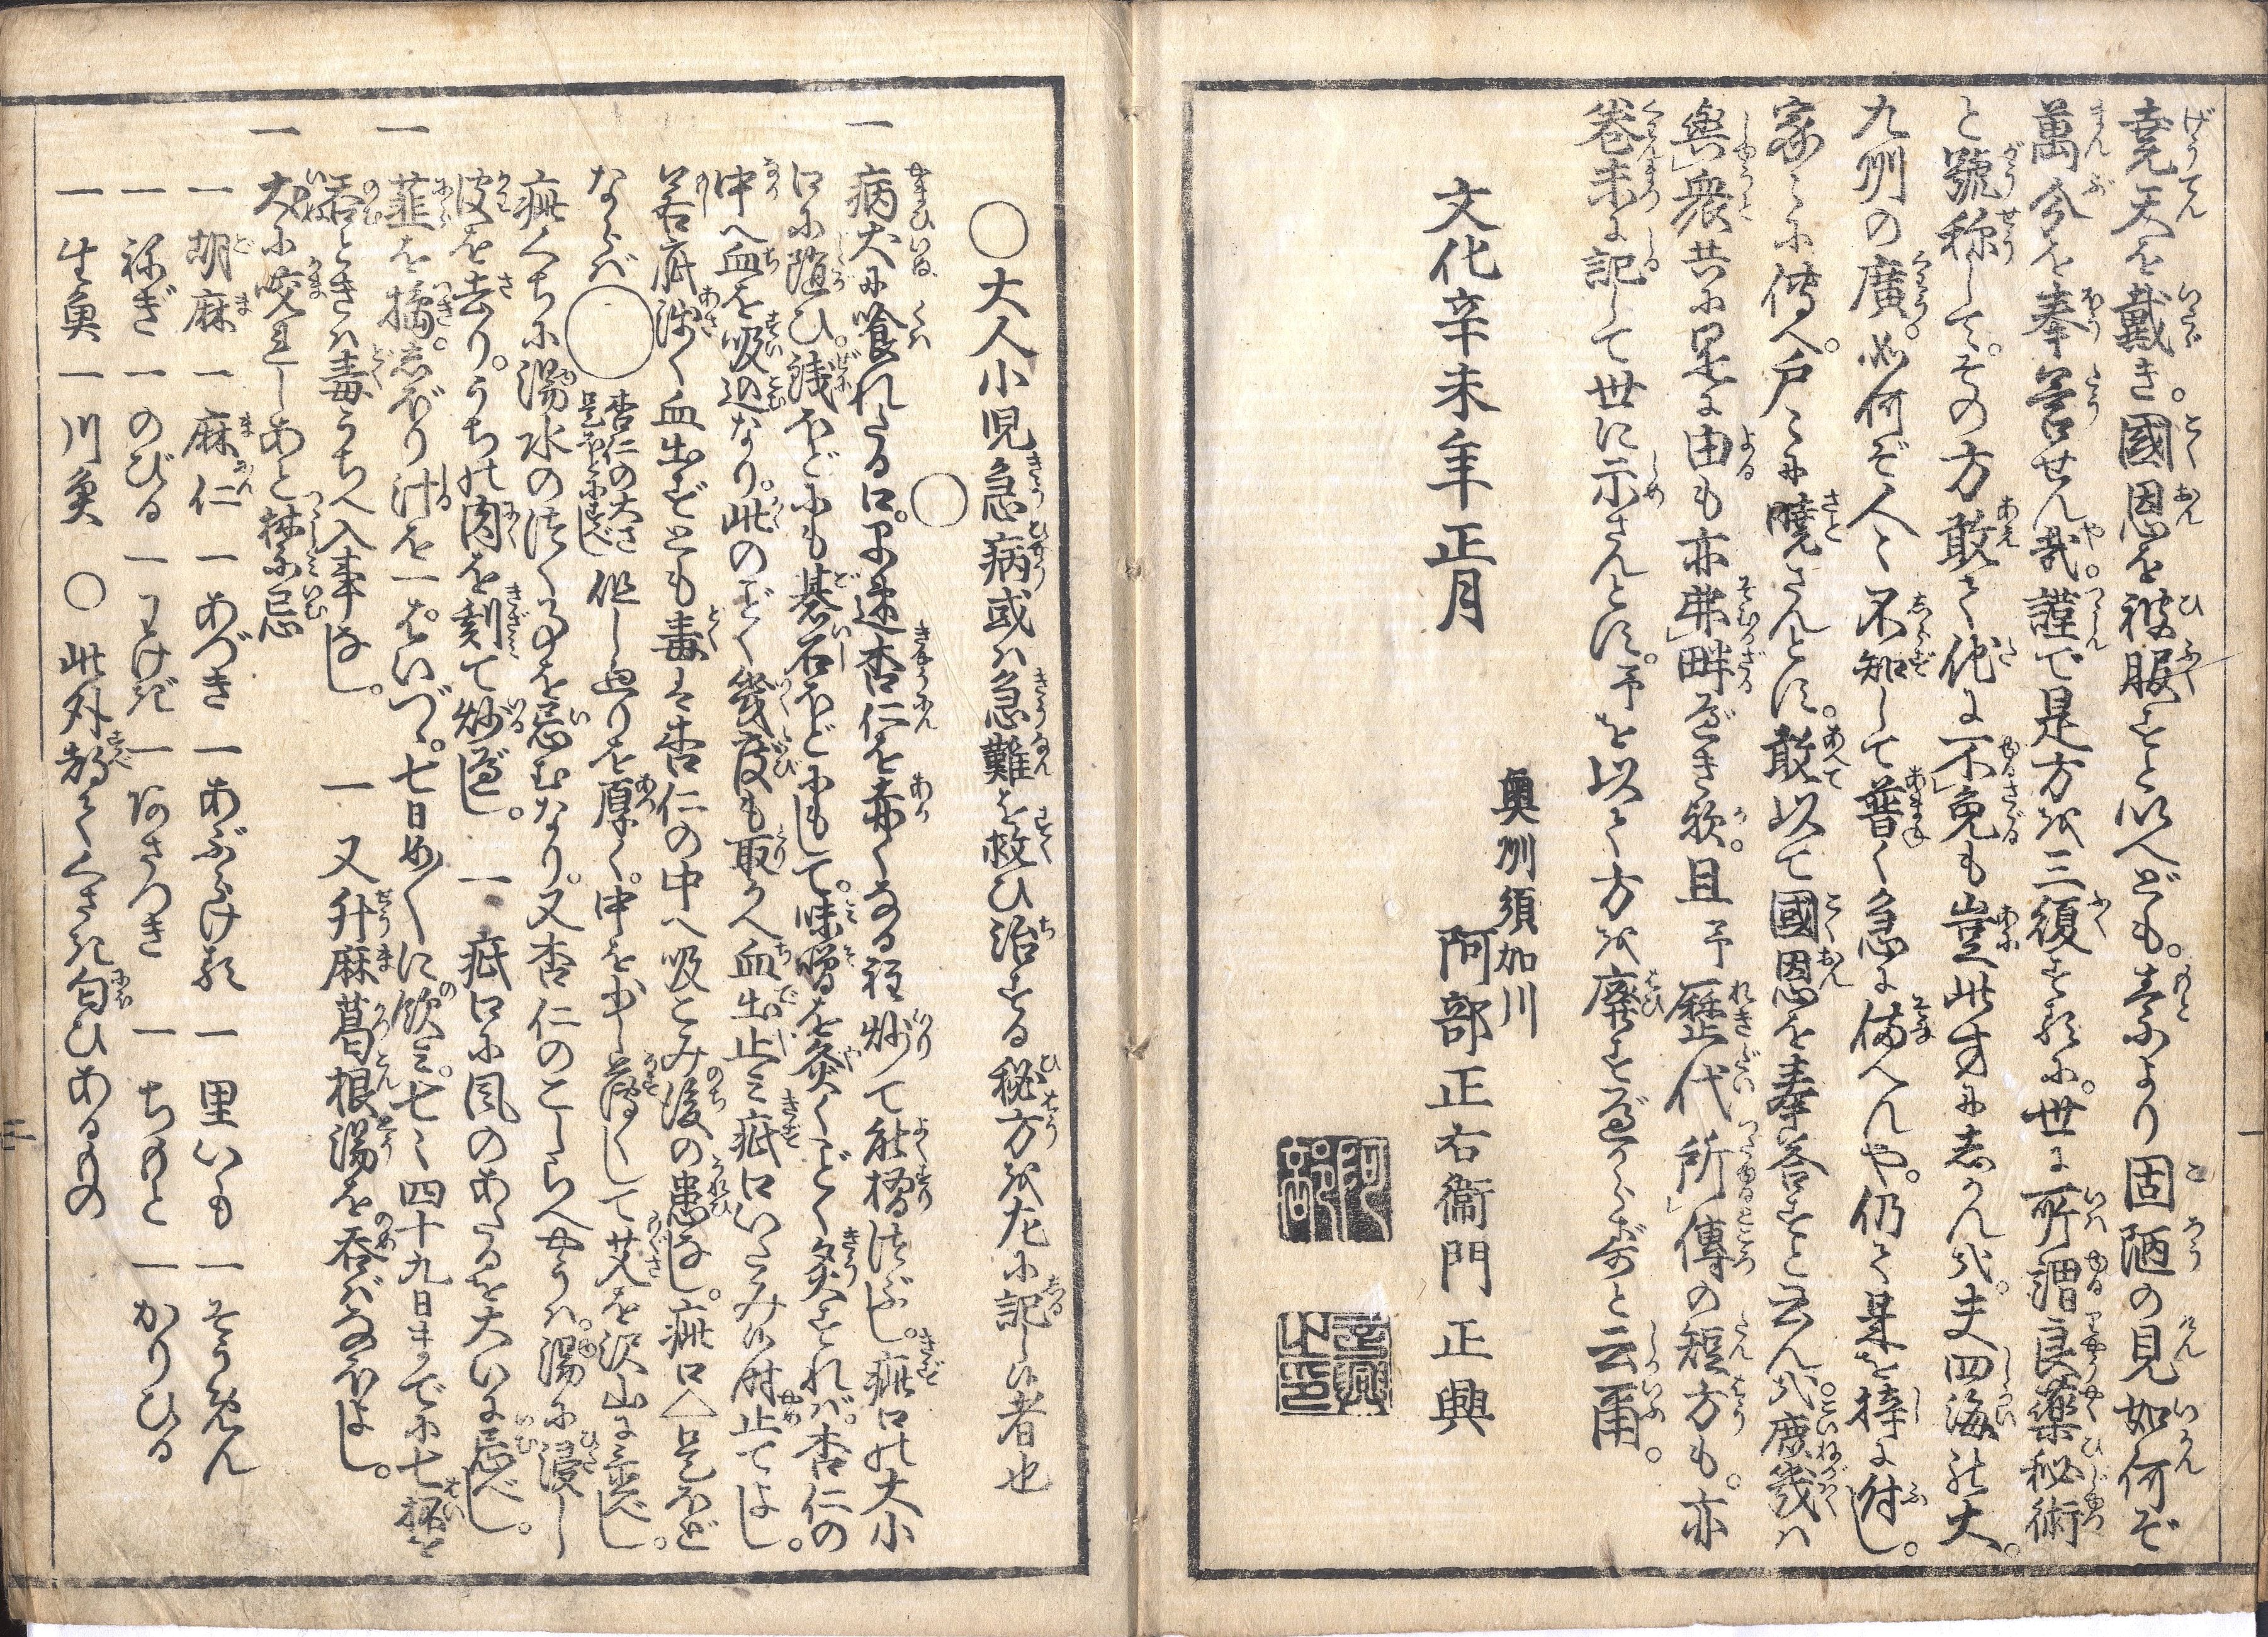 堯天を戴き。國恩を被服すと以へども。素より固陋の見如何ぞ
萬分を奉答せん哉。謹で是方を三復するに。世に所謂良藥秘術
と號称して。その方敢て他に不免も豈此書にしかんや。夫四海の大。
九州の廣。如何ぞ人々不知して普く急に備へんや。仍て是を梓に付し。
家々に傳へ。戸々に曉さんとす。敢以て國恩を奉答すと云んや。庶幾は
與衆共に是に由も亦弗畔べき歟。且予歴代所傳の短方も。亦
巻末に記して世に示さんとす。予を以て方を廃すべからず矣と云爾。
文化辛未年正月
奥州須加川
阿部正右衞門正興
〇大人小児急病或ハ急難を救ひ治する秘方を左に記し候者也
一 病犬に喰れたる口。早速杏仁を赤くなる程炒て能摺つぶし。疵口の大小
口に随ひ。銭ほどにも碁石ほどにもして。味噌を灸くごとく灸すれバ。杏仁の
中へ血を吸込なり。此のごとく幾度も取かへ血出止ミ疵口いたみ候時止てよし。
若疵浅く血出ずとも毒を杏仁の中へ吸こみ後の患なし。疵口△是ほど
ならバ〇杏仁の大さ是ほどにすべし但し廻りを厚く。中を少し薄くして艾を沢山に立べし。
疵くちに湯水のつく事を忌むなり。又杏仁のこしらへやうハ。湯に浸し
皮を去り。うちの肉を刻て炒べし。一 疵口に風のあたるを大いに忌べし。
一 韮を搗。しぼり汁を一ぱいづゝ。七日めくに飲ミ。七々四十九日までに七杯を
呑ときハ毒うちへ入事なし。 一 又升麻葛根湯を呑バなほよし。
一 犬に咬れしあと禁忌
一 胡麻 一 麻仁 一 あづき 一 あぶらけ類 一 里いも 一 そうめん
一 ねぎ 一 のびる 一 わけぎ 一 あさつき 一 ちもと 一 かりひる
一 生魚 一 川魚 〇 此外都てくさき匂ひあるもの